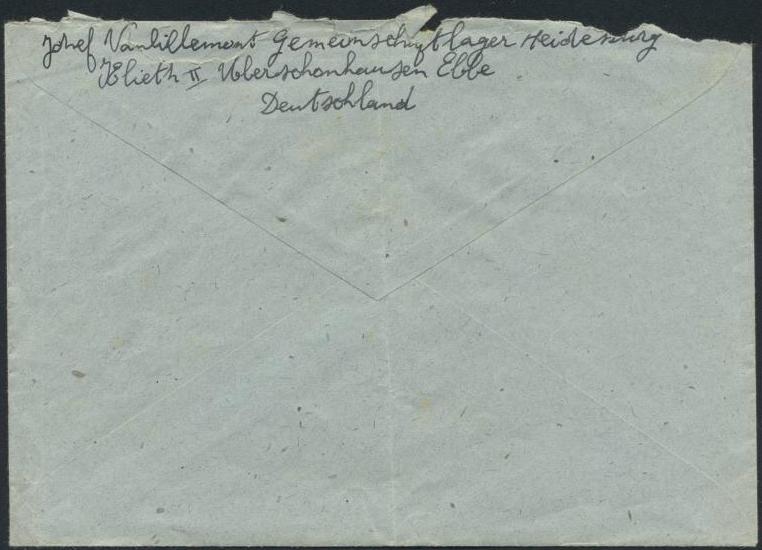 Jozef Vanlillemont Gemeinschaftlager Heideburg
Klieth II Über Schönhausen Elbe
Deutschland